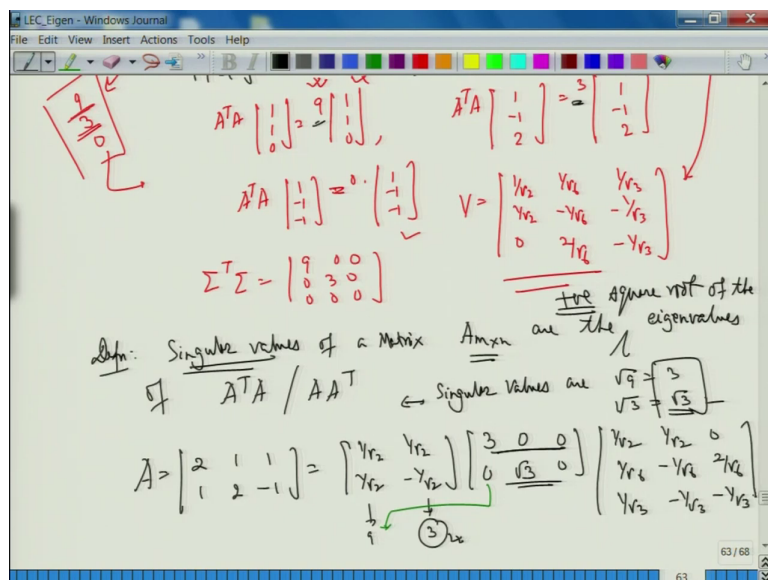 LEC_Eigen - Windows Journal
File Edit View Insert Actions Tools Help
B I
9
3
0
AᵀA [1 1 0] = 9 [1 1 0], AᵀA [1 -1 2] = 3 [1 -1 2]
AᵀA [1 -1 -1] = 0. [1 -1 -1]
V = [1/√2 1/√6 1/√3
1/√2 -1/√6 -1/√3
0 2/√6 -1/√3]
ΣᵀΣ = [9 0 0
0 3 0
0 0 0]
+ve square root of the
Defn: Singular values of a Matrix Amxn are the eigenvalues
of AᵀA / AAᵀ ↔ Singular values are √9 = 3
√3 = √3
A = [2 1 1
1 2 -1] = [1/√2 1/√2
1/√2 -1/√2] [3 0 0
0 √3 0] [1/√2 1/√2 0
1/√6 -1/√6 2/√6
1/√3 -1/√3 -1/√3]
9 3
63 / 68
63